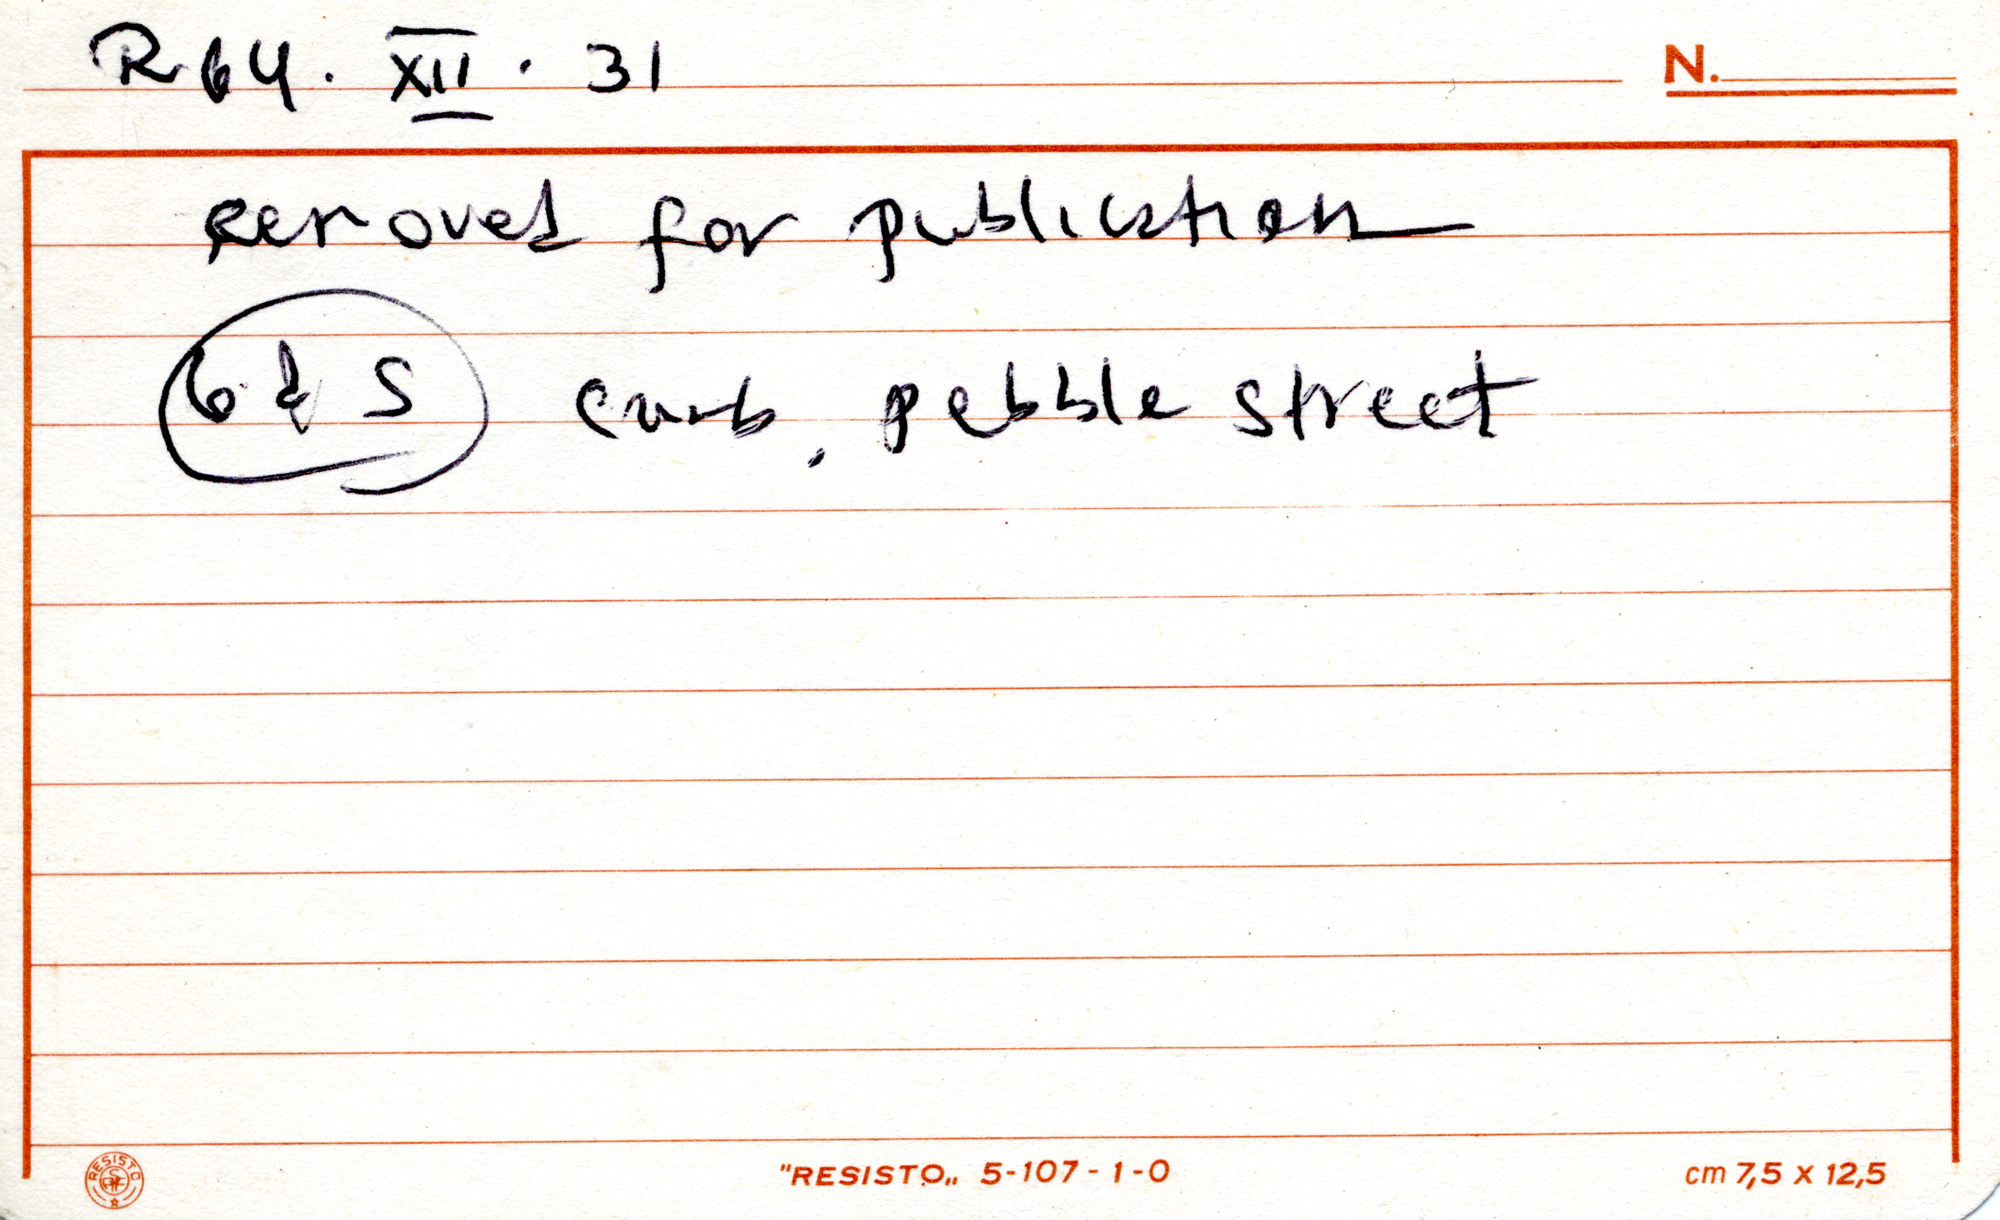 R64. XII. 31
N.
removed for publication
6 & S curb, pebble street
RESISTO
"RESISTO„ 5-107-1-0
cm 7,5 x 12,5